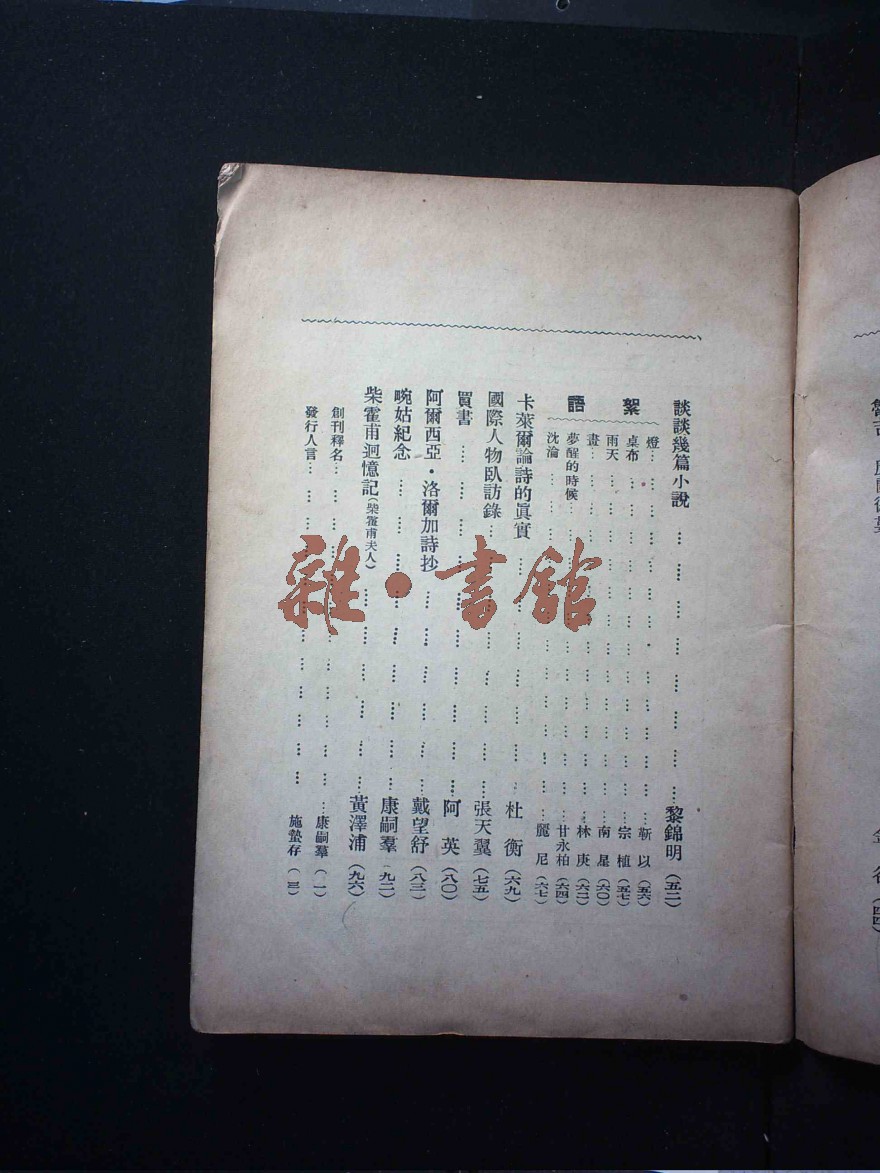 談談幾篇小說 … … … … … … … … … 黎錦明(五二)
絮語
燈 … … … … … … … … … 靳以(五六)
桌布 … … … … … … … … … 宗植(五七)
雨天 … … … … … … … … … 南星(六〇)
畫 … … … … … … … … … 林庚(六二)
夢醒的時候 … … … … … … … … 甘永柏(六四)
沈淪 … … … … … … … … … 麗尼(六七)
卡萊爾論詩的眞實 … … … … … … 杜衡(六九)
國際人物臥訪錄 … … … … … … 張天翼(七五)
買書 … … … … … … … … … 阿英(八〇)
阿爾西亞・洛爾加詩抄 … … … … … 戴望舒(八三)
畹姑紀念 … … … … … … … … 康嗣羣(九二)
柴霍甫迴憶記(柴霍甫夫人) … … … … … 黃澤浦(九六)
創刊釋名 … … … … … … … … 康嗣羣(一)
發行人言 … … … … … … … … 施蟄存(三)
雜・書館